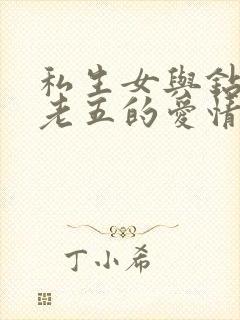 私生女與鉆
老五的愛情
丁小希